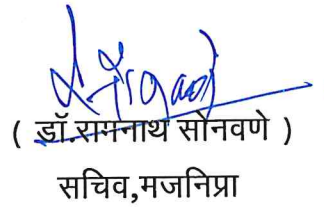 ( डॉ.रामनाथ सोनवणे )
सचिव,मजनिप्रा